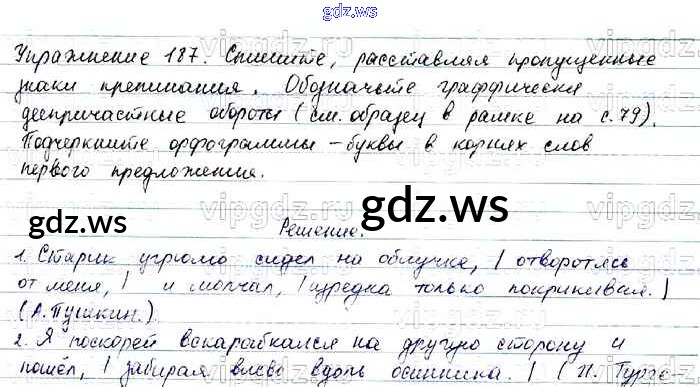 gdz.ws
Упражнение 187. Спишите, расставляя пропущенные
знаки препинания. Обозначьте графически
деепричастные обороты (см. образец в рамке на с. 79).
Подчеркните орфограммы – буквы в корнях слов
первого предложения.
gdz.ws gdz.ws
Решение.
1. Старик угрюмо сидел на облучке, | отворотясь
от меня, | и молчал, | изредка только покрикивая. |
(А. Пушкин.)
2. Я поскорей вскарабкался на другую сторону и
пошёл, | забирая влево вдоль осинника. | (И. Турге-